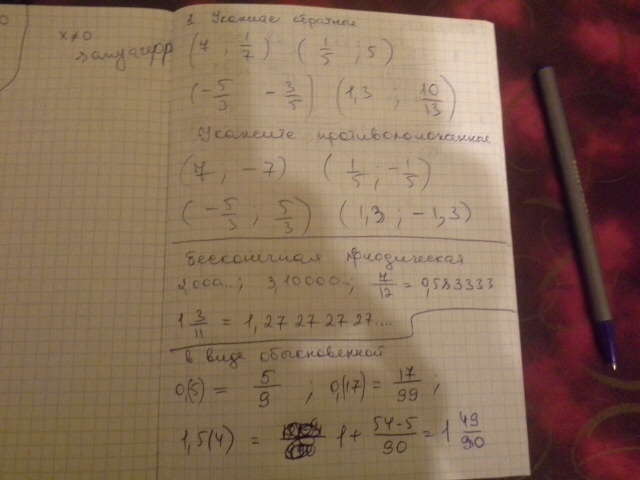 x≠0
1. Укажите обратные
(7 ; 1/7) (1/5 ; 5)
(-5/3 -3/5) (1,3 ; 10/13)
Укажите противоположные
(7, -7) (1/5 ; -1/5)
(-5/3 ; 5/3) (1,3 ; -1,3)
Бесконечная периодическая
2,000...; 3,10000...; 7/12 = 0,583333
1 3/11 = 1,27 27 27 27....
В виде обыкновенной
0,(5) = 5/9 ; 0,(17) = 17/99 ;
1,5(4) = 1 + 54-5/90 = 1 49/90